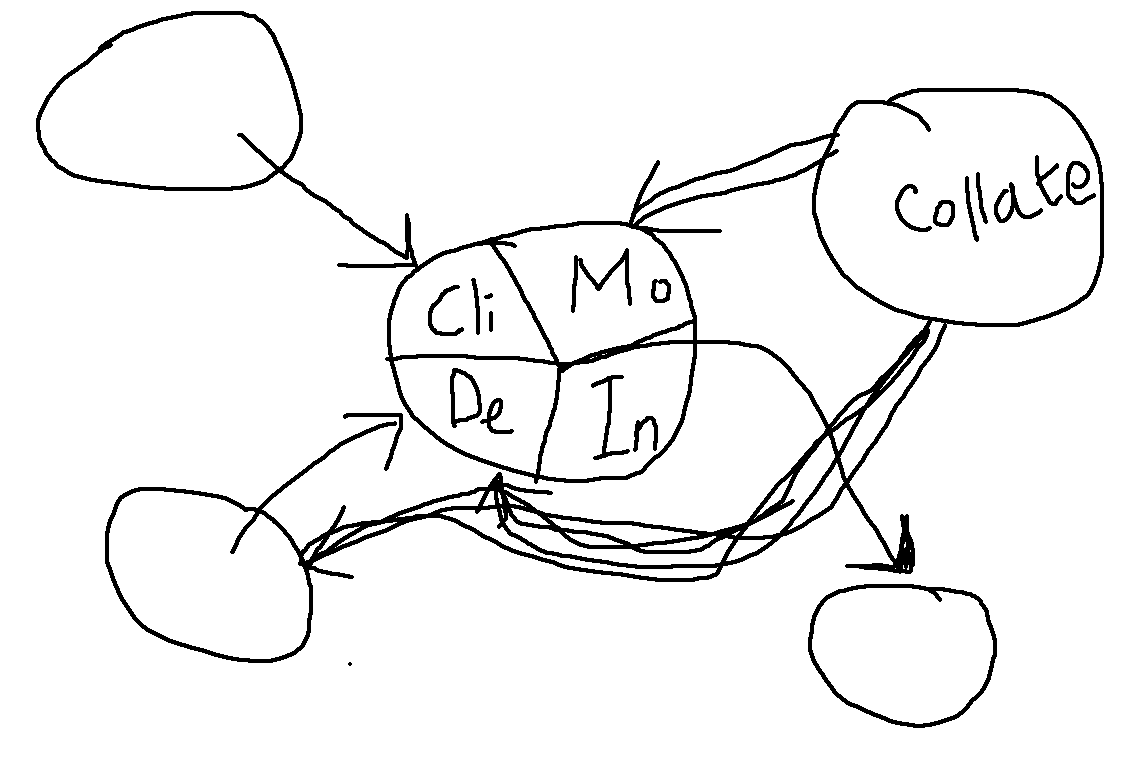 Collate
Cli
Mo
De
In